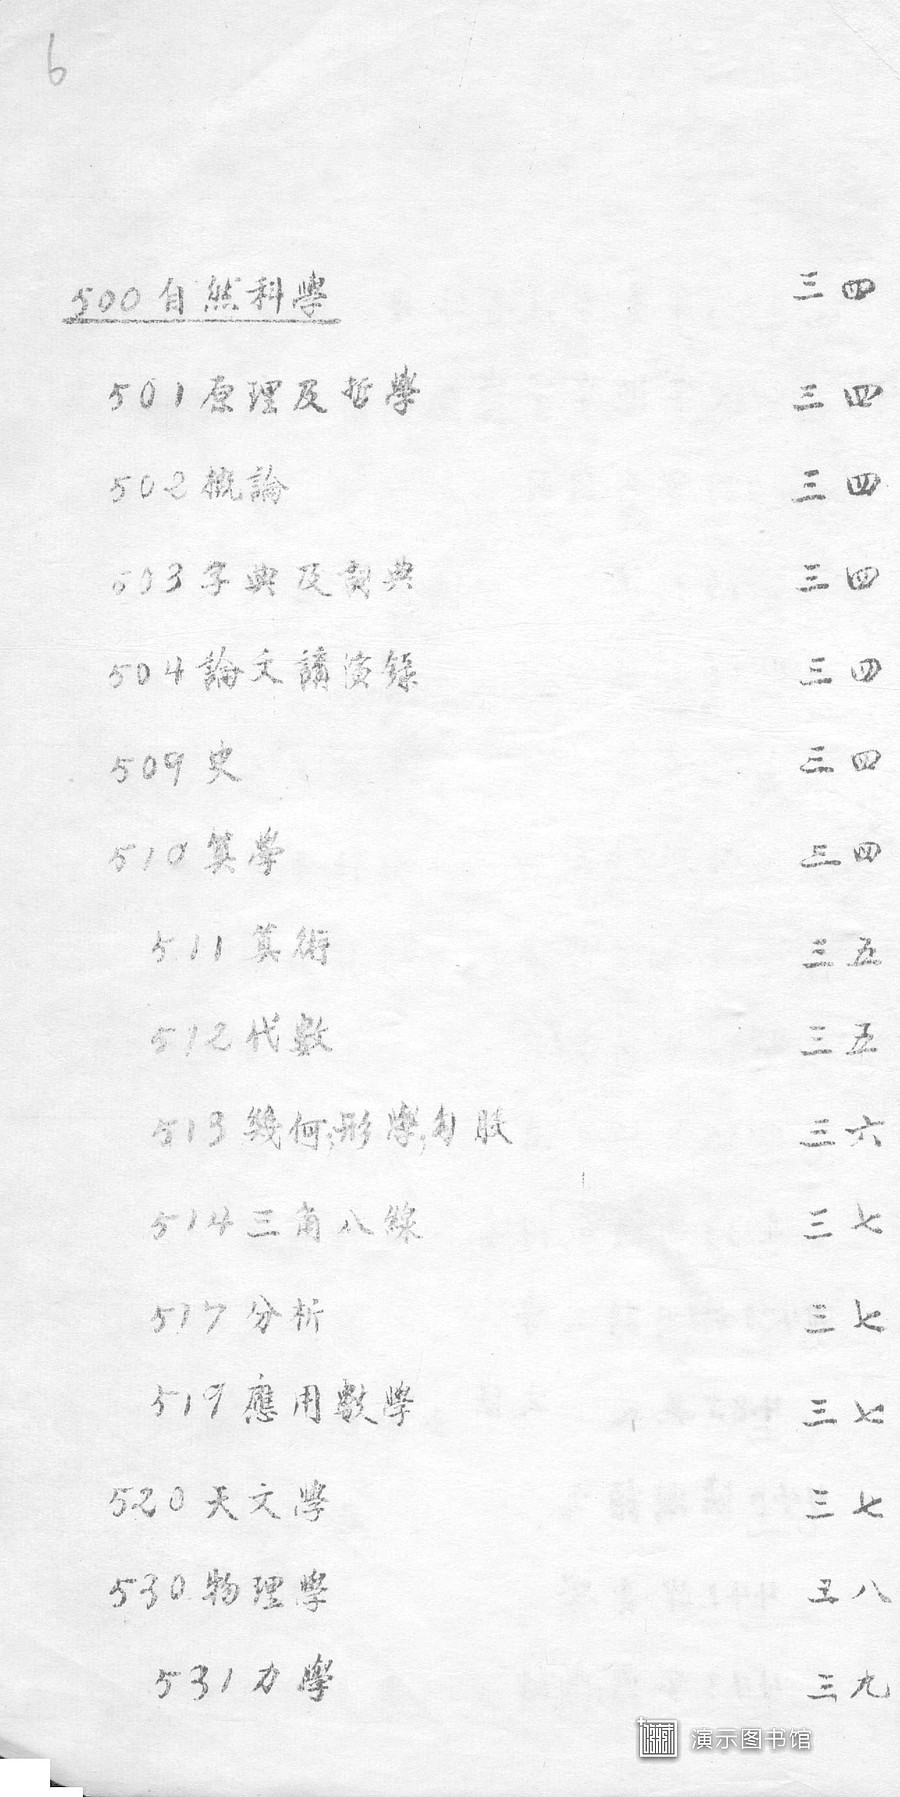 6
500 自然科學 三四
501 原理及哲學 三四
502 概論 三四
503 字典及詞典 三四
504 論文講演錄 三四
509 史 三四
510 算學 三四
511 算術 三五
512 代數 三五
513 幾何,形學,勾股 三六
514 三角八線 三七
517 分析 三七
519 應用數學 三七
520 天文學 三七
530 物理學 三八
531 力學 三九
演示图书馆